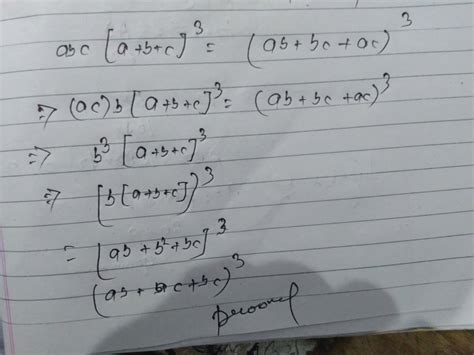 abc [a+b+c]³ = (ab + bc + ac)³
⇒ (ac)b [a+b+c]³ = (ab + bc + ac)³
⇒ b³ [a+b+c]³
⇒ [b[a+b+c])³
= [ab + b² + bc]³
(ab + ac + bc)³
proved